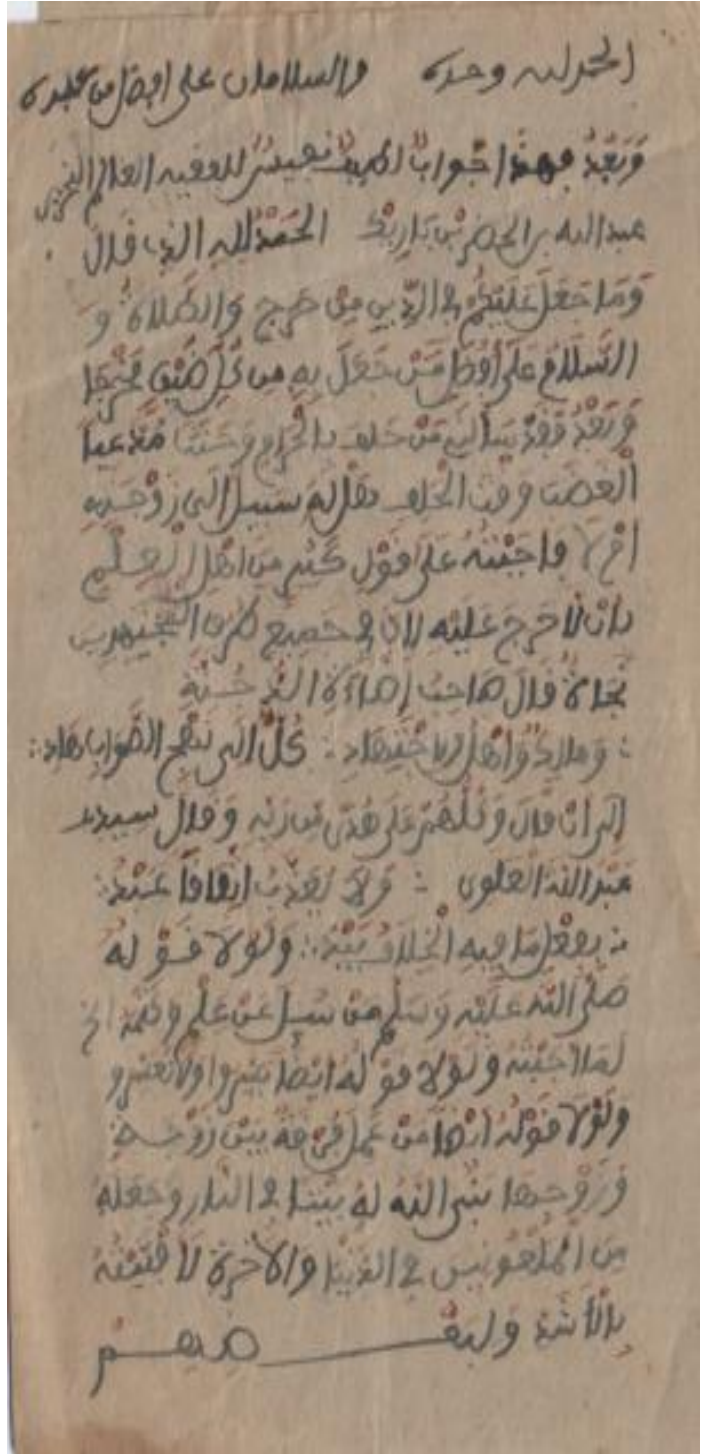 الحمد لله وحده والسلامان على أفضل من عبده
وَبَعْدُ فهذا جواب لطيف نفيس للفقيه العالم النحرير
عبد الله بن الحضرمي الحَمْدُ لِلهِ الذي قال
وَمَا جَعَلَ عَلَيْكُمْ في الدِّينِ مِنْ حَرَجٍ وَالصَّلَاةُ وَ
السَّلَامُ عَلَى أَفْضَلِ مَنْ جَعَلَ بِهِ مِن كُلِّ ضَيْقٍ مَخْرَجًا
وَبَعْدُ فَقَدْ سَأَلَنِي مَنْ حلف بالحَرَامِ وَحَنَثَ مُدَّعِيًا
الْغَضَبَ وقت الْحَلِف هَلْ لَهُ سَبِيلٌ إلَى زَوْجَتِهِ
أمْ لَا فأجَبْتُهُ عَلَى قَوْلِ كَثِيرٍ مِنْ أهْلِ الْعِلْمِ
بأن لا حَرَجَ عَلَيْهِ لأن في جميع طُرُقِ المجتهدين
نجاةً قَالَ صَاحِبُ إضَاءَةِ الدُّجُنَّةِ
∴ ومالك وَأهْلُ الِاجْتِهَادِ ∴ كُلٌّ إلَى نَهْجِ الصَّوَابِ هَادِ ∴
إلى أن قال وَكُلُّهُمْ عَلَى هُدًى مِن رَبِّهِ وَقَالَ سيدي
عَبْدُ اللهِ العلوي ∴ وَلَا يُعَذِّبُ اتِّفَاقًا عَبْدَهُ
∴ بِفِعْلِ مَا فِيهِ الْخِلَافُ ∴ وَلَوْلَا قَوْلُهُ
صَلَّى اللهُ عَلَيْهِ وَسَلَّمَ مَنْ سُئِلَ عَنْ عِلْمٍ وكتمه الخ
لَمَا أجَبْتُهُ وَلَوْلَا قَوْلُهُ أيْضًا يَسِّرُوا وَلَا تُعَسِّرُو
وَلَوْلَا قَوْلُهُ أيْضًا مَنْ عَمِلَ فُرْقَةً بَيْنَ زَوْجَةٍ
وَزَوْجِهَا بَنَى اللهُ لَهُ بَيْتًا في النَّارِ وَجَعَلَهُ
مِنَ الْمَلْعُونِينَ في الدُّنْيَا وَالْآخِرَةِ لَأفْتَيْتُهُ
بِالْأشَدِّ وَلبعضهم